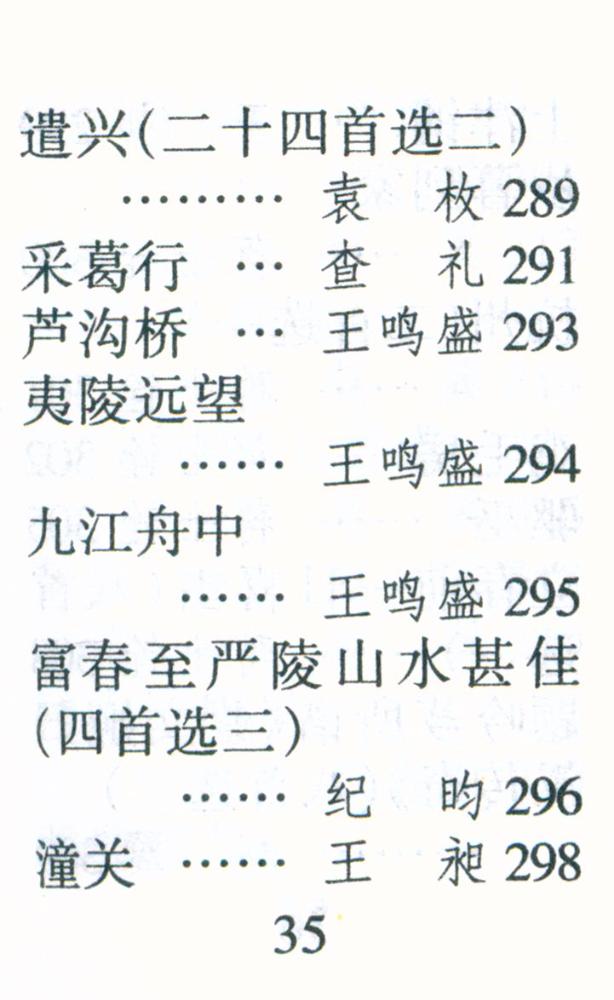 遣兴(二十四首选二)
……… 袁 枚 289
采葛行 … 查 礼 291
芦沟桥 … 王鸣盛 293
夷陵远望
…… 王鸣盛 294
九江舟中
…… 王鸣盛 295
富春至严陵山水甚佳
(四首选三)
…… 纪 昀 296
潼关 …… 王 昶 298
35